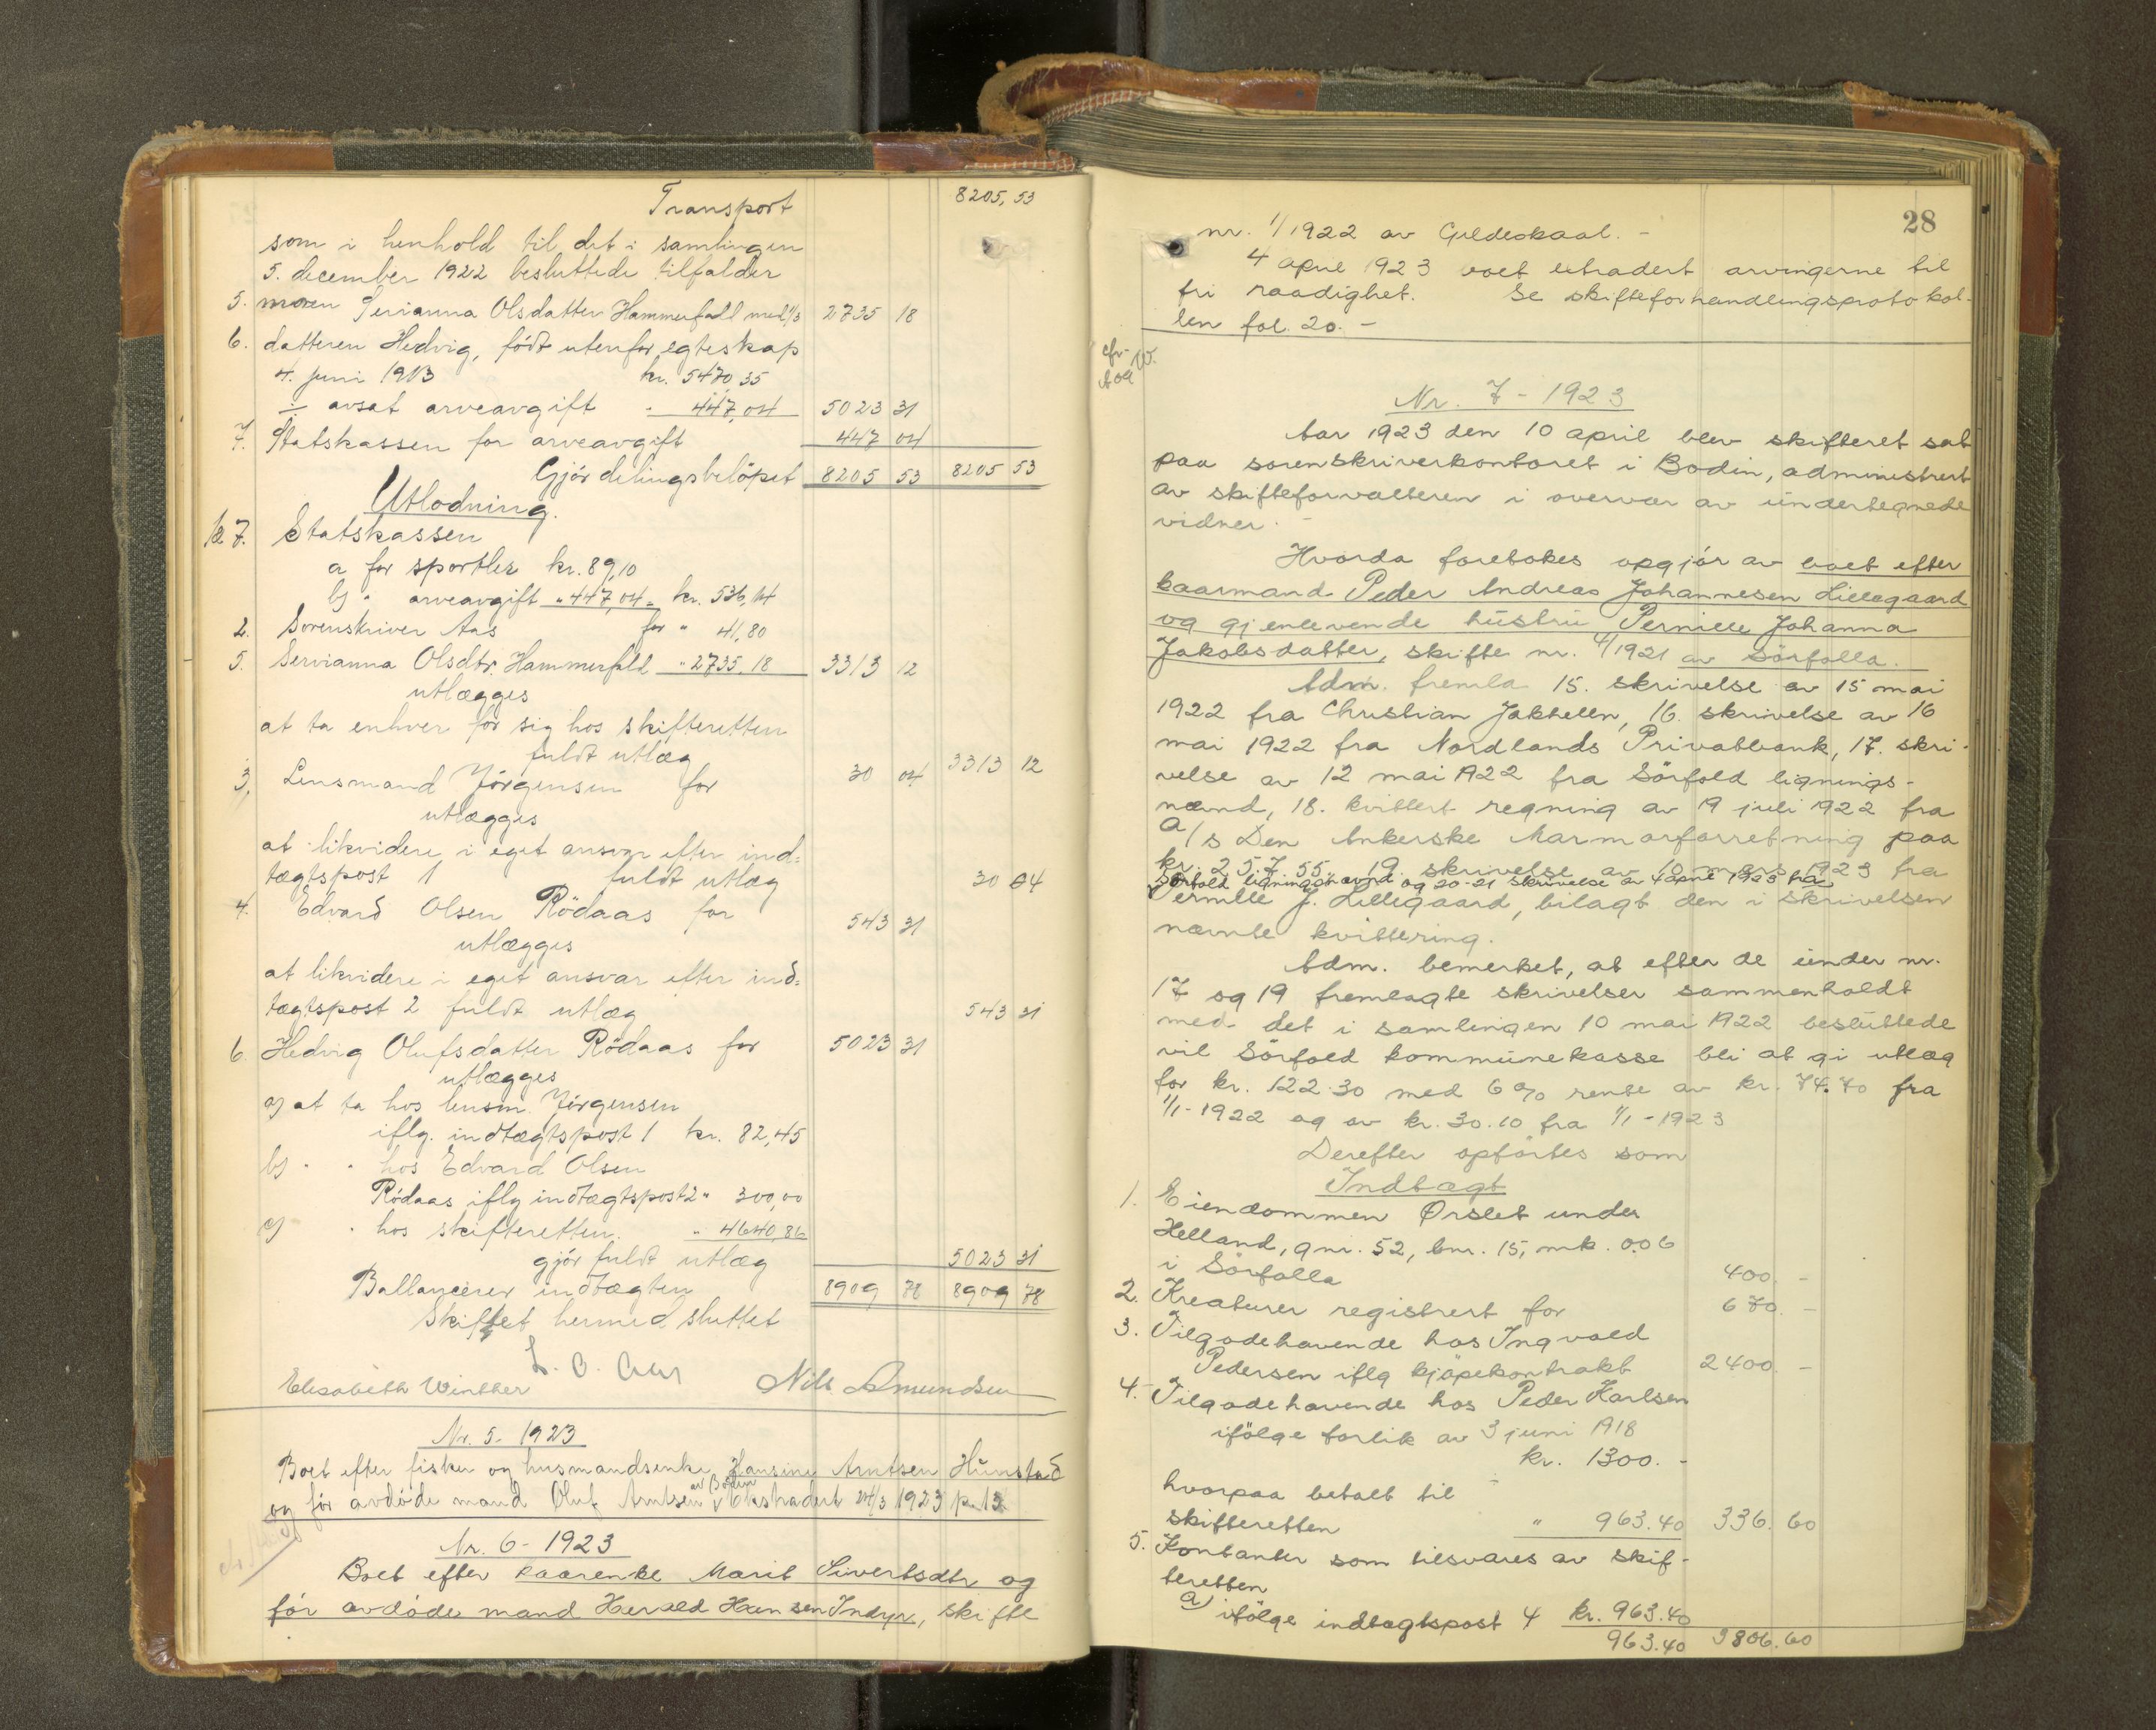 Transport 8205,53
som i henhold til det i samlingen
5. december 1922 besluttede tilfalder
5. moren Serianna Olsdatter Hammerfall med 1/3 2735 18
6. datteren Hedvig, født utenfor egteskap
4. juni 1913 kr. 5470,35
÷ avsat arveavgift " 447,04 5023 31
7. Statskassen for arveavgift 447 04
Gjør delingsbeløpet 8205 53 8205 53
Utlodning.
1 & 7. Statskassen
a for sportler kr. 89,10
b) " arveavgift " 447,04 = kr. 536,14
2. Sorenskriver Aas for " 41,80
5. Servianna Olsdtr. Hammerfald " 2735.18 3313 12
utlægges
at ta enhver for sig hos skifteretten
fuldt utlæg 3313 12
3. Lensmand Jørgensen for 30 04
utlægges
at likvidere i eget ansvar efter ind=
tægtspost 1 fuldt utlæg 30 04
4. Edvard Olsen Rödaas for 543 31
utlægges
at likvidere i eget ansvar efter ind=
tægtspost 2 fuldt utlæg 543 31
6. Hedvig Olufsdatter Rödaas for 5023 31
utlægges
a) at ta hos lensm. Jørgensen
iflg. indtægtspost 1 kr. 82,45
b) " " hos Edvard Olsen
Rödaas iflg indtægtspost 2 " 300,00
c) " hos skifteretten. " 4640,86
gjør fuldt utlæg 5023 31
Ballancerer indtægten 8909 78 8909 78
Skiftet hermed sluttet
L. O. Aas
Elisabeth Winther Nils Amundsen
Nr. 5 - 1923
Boet efter fisker og husmandsenke Hansine Arntsen Hunstad
og før avdøde mand Oluf Arntsen av Bodin ekstradert 24/3 1923 p. 13
Nr. 6 - 1923
Boet efter kaarenke Marit Sivertsdtr og
før avdøde mand Herald Hansen Indyr, skifte
28
nr. 1/1922 av Gildeskaal. -
4 april 1923 boet extradert arvingerne til
fri raadighet. Se skifteforhandlingsprotokol-
len fol. 20. -
Nr. 7 - 1923
Aar 1923 den 10 april blev skifteret sat
paa sorenskriverkontoret i Bodin, administrert
av skifteforvalteren i overvær av undertegnede
vidner. -
Hvorda foretokes opgjør av boet efter
kaarmand Peder Andreas Johannesen Lillegaard
og gjenlevende hustru Pernille Johanna
Jakobsdatter, skifte nr. 4/1921 av Sörfolla.
Adm. fremla 15. skrivelse av 15 mai
1922 fra Christian Jakhelln, 16. skrivelse av 16
mai 1922 fra Nordlands Privatbank, 17. skri-
velse av 12 mai 1922 fra Sörfold lignings-
nævnd, 18. kvittert regning av 19 juli 1922 fra
a/s Den Ankerske Marmorforretning paa
kr. 257.55, 19. skrivelse av 10 mars 1923 fra
Sørfold ligningsnævnd og 20-21 skrivelse av 4 april 1923 fra
Pernille J. Lillegaard, bilagt den i skrivelsen
nævnte kvittering.
Adm. bemerket, at efter de under nr.
17 og 19 fremlagte skrivelser sammenholdt
med det i samlingen 10 mai 1922 besluttede
vil Sörfold kommunekasse bli at gi utlæg
for kr. 122.30 med 6 % rente av kr. 74.70 fra
1/1-1922 og av kr. 30.10 fra 1/1-1923
Derefter opførtes som
Indtægt
1. Eiendommen Ørslet under
Helland, gnr. 52, bnr. 15, mk. 0.06
i Sörfolla 400. -
2. Kreaturer registrert for 670. -
3. Tilgodehavende hos Ingvald
Pedersen iflg kjøpekontrakt 2400. -
4. Tilgodehavende hos Peder Karlsen
ifölge forlik av 3 juni 1918
kr. 1300. -
hvorpaa betalt til
skifteretten " 963.40 336.60
5. Kontanter som tilsvares av skif-
teretten
a) ifölge indtægtspost 4 kr. 963.40
963.40 3806.60